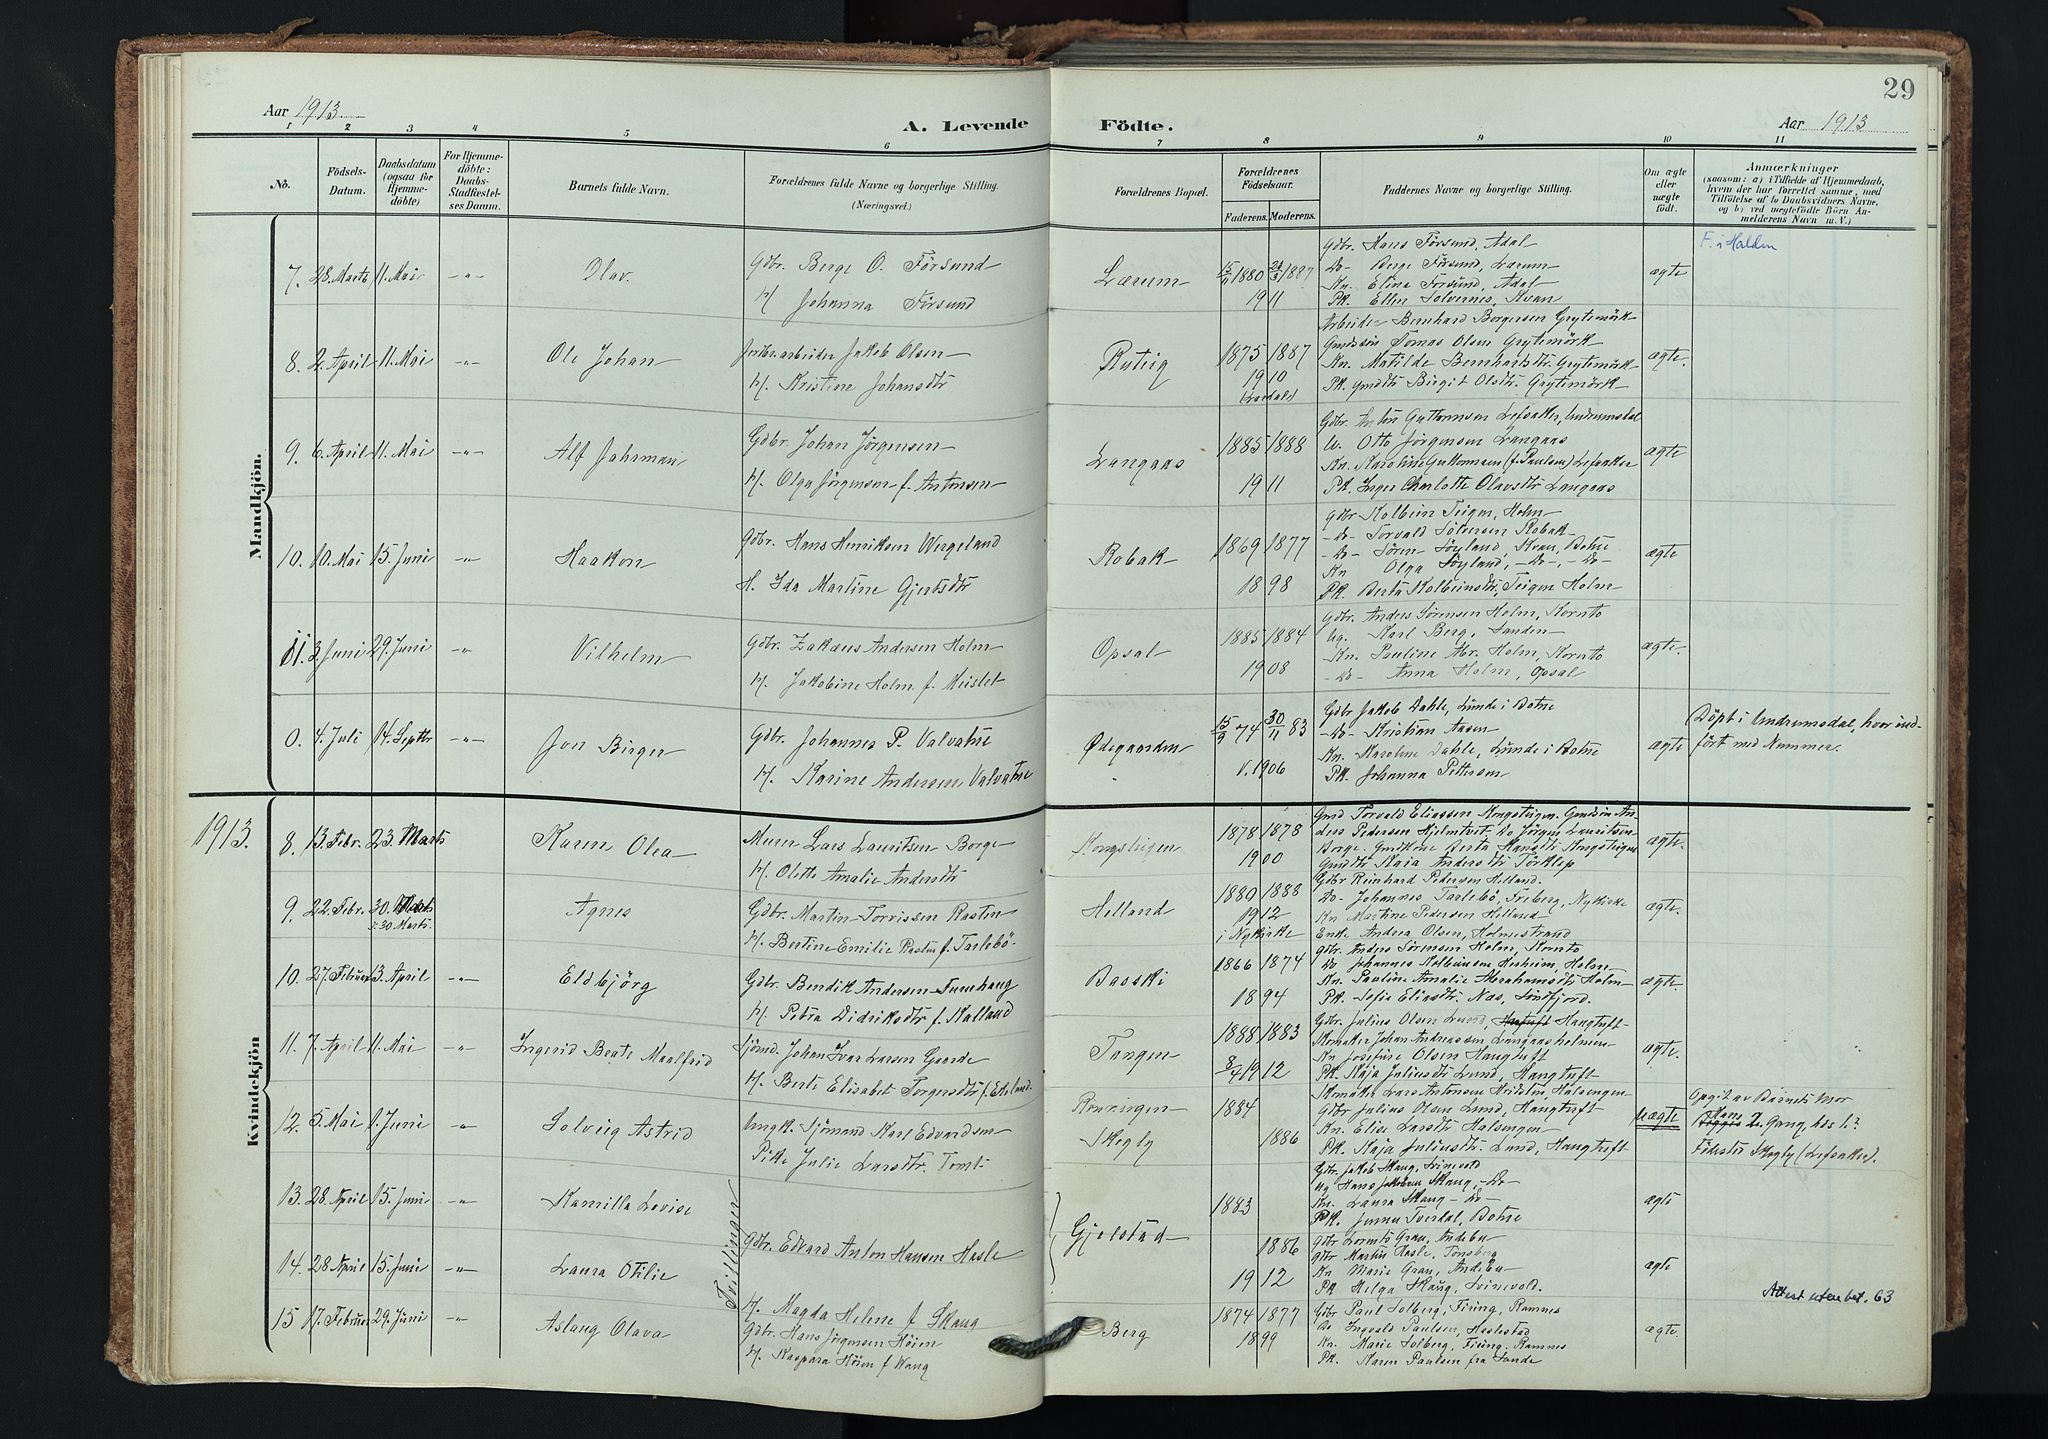 29
Aar 1913
A. Levende
Födte.
Aar 1913
1 2 3 4 5 6 7 8 9 10 11
No.
Födsels-
Datum.
Daabsdatum
(ogsaa for
Hjemme-
döbte)
For Hjemme-
döbte:
Daabs-
Stadfæstel-
ses Datum.
Barnets fulde Navn.
Forældrenes fulde Navne og borgerlige Stilling.
(Næringsvei.)
Forældrenes Bopæl.
Forældrenes
Födselsaar.
Faderens. Moderens.
Faddernes Navne og borgerlige Stilling.
Om ægte
eller
uægte
födt.
Anmærkninger
(saasom: a) i Tilfælde af Hjemmedaab,
hvem der har forrettet samme, med
Tilföielse af to Daabsvidners Navne,
og b) ved uægtefödte Börn An-
melderens Navn m. V.)
Mandkjön.
7. 28. Marts 11. Mai -"- Olav.
Gdbr. Berge O. Försund
H/ Johanna Försund
Lærum 1880 1887
1911
Gdbr. Hans Försund, Adal
Do- Berge Försund, Lærum
Kn. Elina Försund, Adal
Pk. Ellen Solvernes, Kvan
ægte
F. i Halden
8. 2. April 11. Mai -"- Ole Johan
arbeider Jakob Olsen
H/. Kristine Johansdtr
1875 1887
1910
Arbeider Bernhard Borgersen Grytemörk
Gmdsön Tomas Olsen Grytemörk
Kn. Matilde Bernhartsdtr. Grytemörk
Pk. gmdtr Birgit Olsdtr. Grytemörk
ægte.
9. 6. April 11. Mai -"- Alf Jahrman
Gdbr. Johan Jörgensen
H/. Olga Jörgensen f. Antonsen
Langaas 1885 1888
1911
Gdbr. Anton Guttormsen Lefsaker, Undrumsdal
U. Otto Jörgensen Langaas
Kn. Karoline Guttormsen (f. Paulsen) Lefsaker
Pk. Inger Charlotte Olavsdtr Langaas
ægte
10. 10. Mai 15. Juni -"- Haakon
Gdbr. Hans Henriksen Wergeland
H. Ida Martine Gjertsdtr
Robak 1869 1877
1898
Gdbr Kolbein Teigen, Holm
-Do- Torvald Sölversen Robak
-Do- Sören Söyland, Kvan, Botne
Kn Olga Söyland, -Do-, -Do-
Pk. Berta Kolbeinsdtr, Teigen Holm
ægte
11. 3. Juni 29. Juni -"- Vilhelm
Gdbr. Zakæus Andersen Holm
H/. Jakobine Holm f. Meislet
Opsal 1885 1884
1908
Gdbr. Anders Sörensen Holm, Kornto
Ug. Karl Berg, Sanden
Kn. Pauline Abr. Holm, Kornto
-Do- Anna Holm, Opsal
ægte.
0. 4. Juli 14. Septbr -"- Jon Birger
Gdbr. Johannes P. Valvatne
H/. Karine Andersen Valvatne
Ødegaarden 15/9 74 30/11 83
V. 1906
Gdbr Jakob Dahle, Lunde i Botne
-Do- Kristian Aasen
Kn. Karoline Dahle, Lunde i Botne
Pk. Johanna Pettersen
ægte
Döpt i Undrumsdal, hvor ind-
fört med Nummer.
1913.
Kvindekjön
8. 13. Febr. 23. Marts Karen Olea
Murer Lars Lauritsen Borge
H/. Olette Amalie Andersdtr
Kongsteigen 1878 1878
1900
Gmd Torvald Eliassen Kongsteigen. Gmdsön An-
ders Pedersen Hjelmtvet. Do Jörgen Lauritsen
Borge. Gmdkone Berta Hansdtr Kongsteigen
Gmdtr Kaia Andersdtr Törklep
ægte.
9. 22. Febr. 30. Marts
30 Marts. Agnes
Gdbr. Martin Torvissen Rasten
H/. Bertine Emilie Rasten f. Tarlebö
Helland 1880 1888
1912
i Nykirke
Gdbr Reinhard Pedersen Helland.
Do- Johannes Tarlebö, Freberg, Nykirke
Kn Martine Pedersen Helland
Enke Andrea Olsen, Holmestrand
ægte.
10. 27. Februar 13. April -"- Eldbjörg
Gdbr. Bendik Andersen
H/. Petra Didriksdtr f. Kalland
Basski 1866 1874
1894
Gdbr. Anders Sörensen Holm, Kornto
Do Johannes Kolbeinsen Holm
Kn. Pauline Amalie Abrahamsdtr Holm
Pk. Sofia Eliasdtr. Næs, Sandfjord.
ægte.
11. 7. April 11. Mai -"- Ingerid Beate Maalfrid
Sjömd. Johan Ivar Larsen Gaarde
H/. Berte Elisabet Torgersdtr f. Eteland
Tangen 1888 1883
8/4 1912
Gdbr. Julius Olsen Lund, Haugtuft
Skomaker Johan Andreassen Langaasholmen
Kn Josefine Olsen Haugtuft
Pk. Kaja Juliusdtr Lund, Haugtuft
ægte.
12. 5. Mai 1. Juni -"- Solveig Astrid
Ungk. Sjömand Karl Edvardsen
Pike Julie Larsdtr. Tomt
Rönningen
Skogly 1884
1886
Skomaker Lars Antonsen Halsengen
Gdbr. Julius Olsen Lund, Haugtuft
Kn. Elise Larsdtr Halsengen
Pk. Kaja Juliusdtr. Lund, Haugtuft
uægte
Opgit av Barnets Mor
Hans 2. Gang, hös 1.?
Födested Skogly (Lefsaker).
Tvillinger
13. 28. April 15. Juni -"- Kamilla Lovise
Gdbr. Jakob Skaug, Svinevold
Ug Hans Jakobsen Skaug, -Do-
Kn. Laura Skaug -Do-
Pk. Tverdal, Botne
ægte
Gdbr. Edvard Anton Hansen Hasle
H/. Magda Helene f Skaug
Gjelstad 1883
1886
1912
14. 28 April 15. Juni -"- Laura Otilie
Gdbr Lorents Grav, Andebu
Gdbr Martin Hasle, Tønsberg
Kn Marie Grav, Andebu
Pk Helga Skaug, Svinevold.
ægte
15 17. Februar 29. Juni -"- Aslaug Olava
Gdbr. Hans Jörgensen Höien
H/. Kaspara Höien f Haug
Berg 1874 1877
1899
Gdbr Paul Solberg, Firing, Ramnes
Do Ingvald Paulsen, Haslestad
Kn. Marie Solberg, Firing, Ramnes
Pk. Karen Paulsen fra Sande
ægte.
Attest uten bet. 63